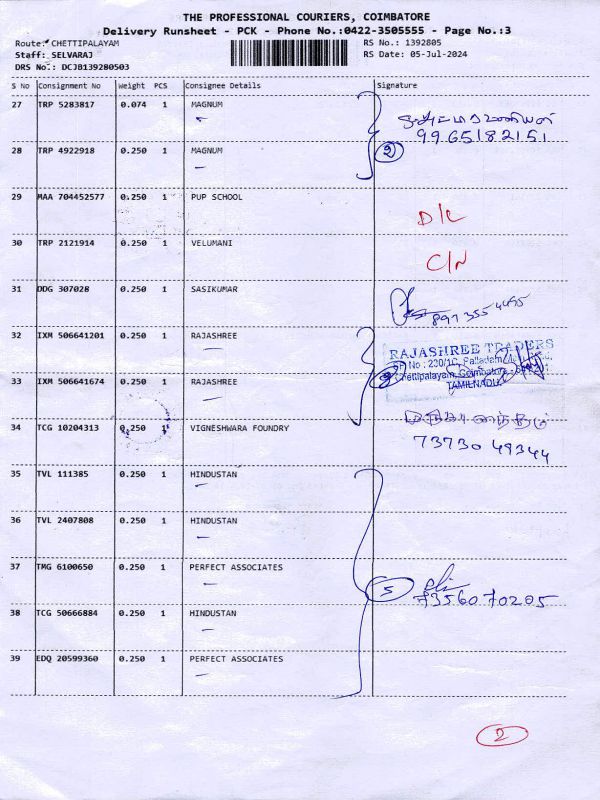 THE PROFESSIONAL COURIERS, COIMBATORE
Delivery Runsheet - PCK - Phone No.:0422-3505555 - Page No.:3
Route: CHETTIPALAYAM RS No.: 1392805
Staff: SELVARAJ RS Date: 05-Jul-2024
DRS No.: DCJB139280503
S No Consignment No Weight PCS Consignee Details Signature
27 TRP 5283817 0.074 1 MAGNUM
9965182151
28 TRP 4922918 0.250 1 MAGNUM 2
29 MAA 704452577 0.250 1 PUP SCHOOL D/L
30 TRP 2121914 0.250 1 VELUMANI C/N
31 DDG 307028 0.250 1 SASIKUMAR
32 IXM 506641201 0.250 1 RAJASHREE RAJASHREE TRADERS
No : 230/1C, Palladam
33 IXM 506641674 0.250 1 RAJASHREE Chettipalayam, Coimbatore
TAMILNADU
34 TCG 10204313 0.250 1 VIGNESHWARA FOUNDRY
73730 49344
35 TVL 111385 0.250 1 HINDUSTAN
36 TVL 2407808 0.250 1 HINDUSTAN
37 TMG 6100650 0.250 1 PERFECT ASSOCIATES 5
7356070205
38 TCG 50666884 0.250 1 HINDUSTAN
39 EDQ 20599360 0.250 1 PERFECT ASSOCIATES
2